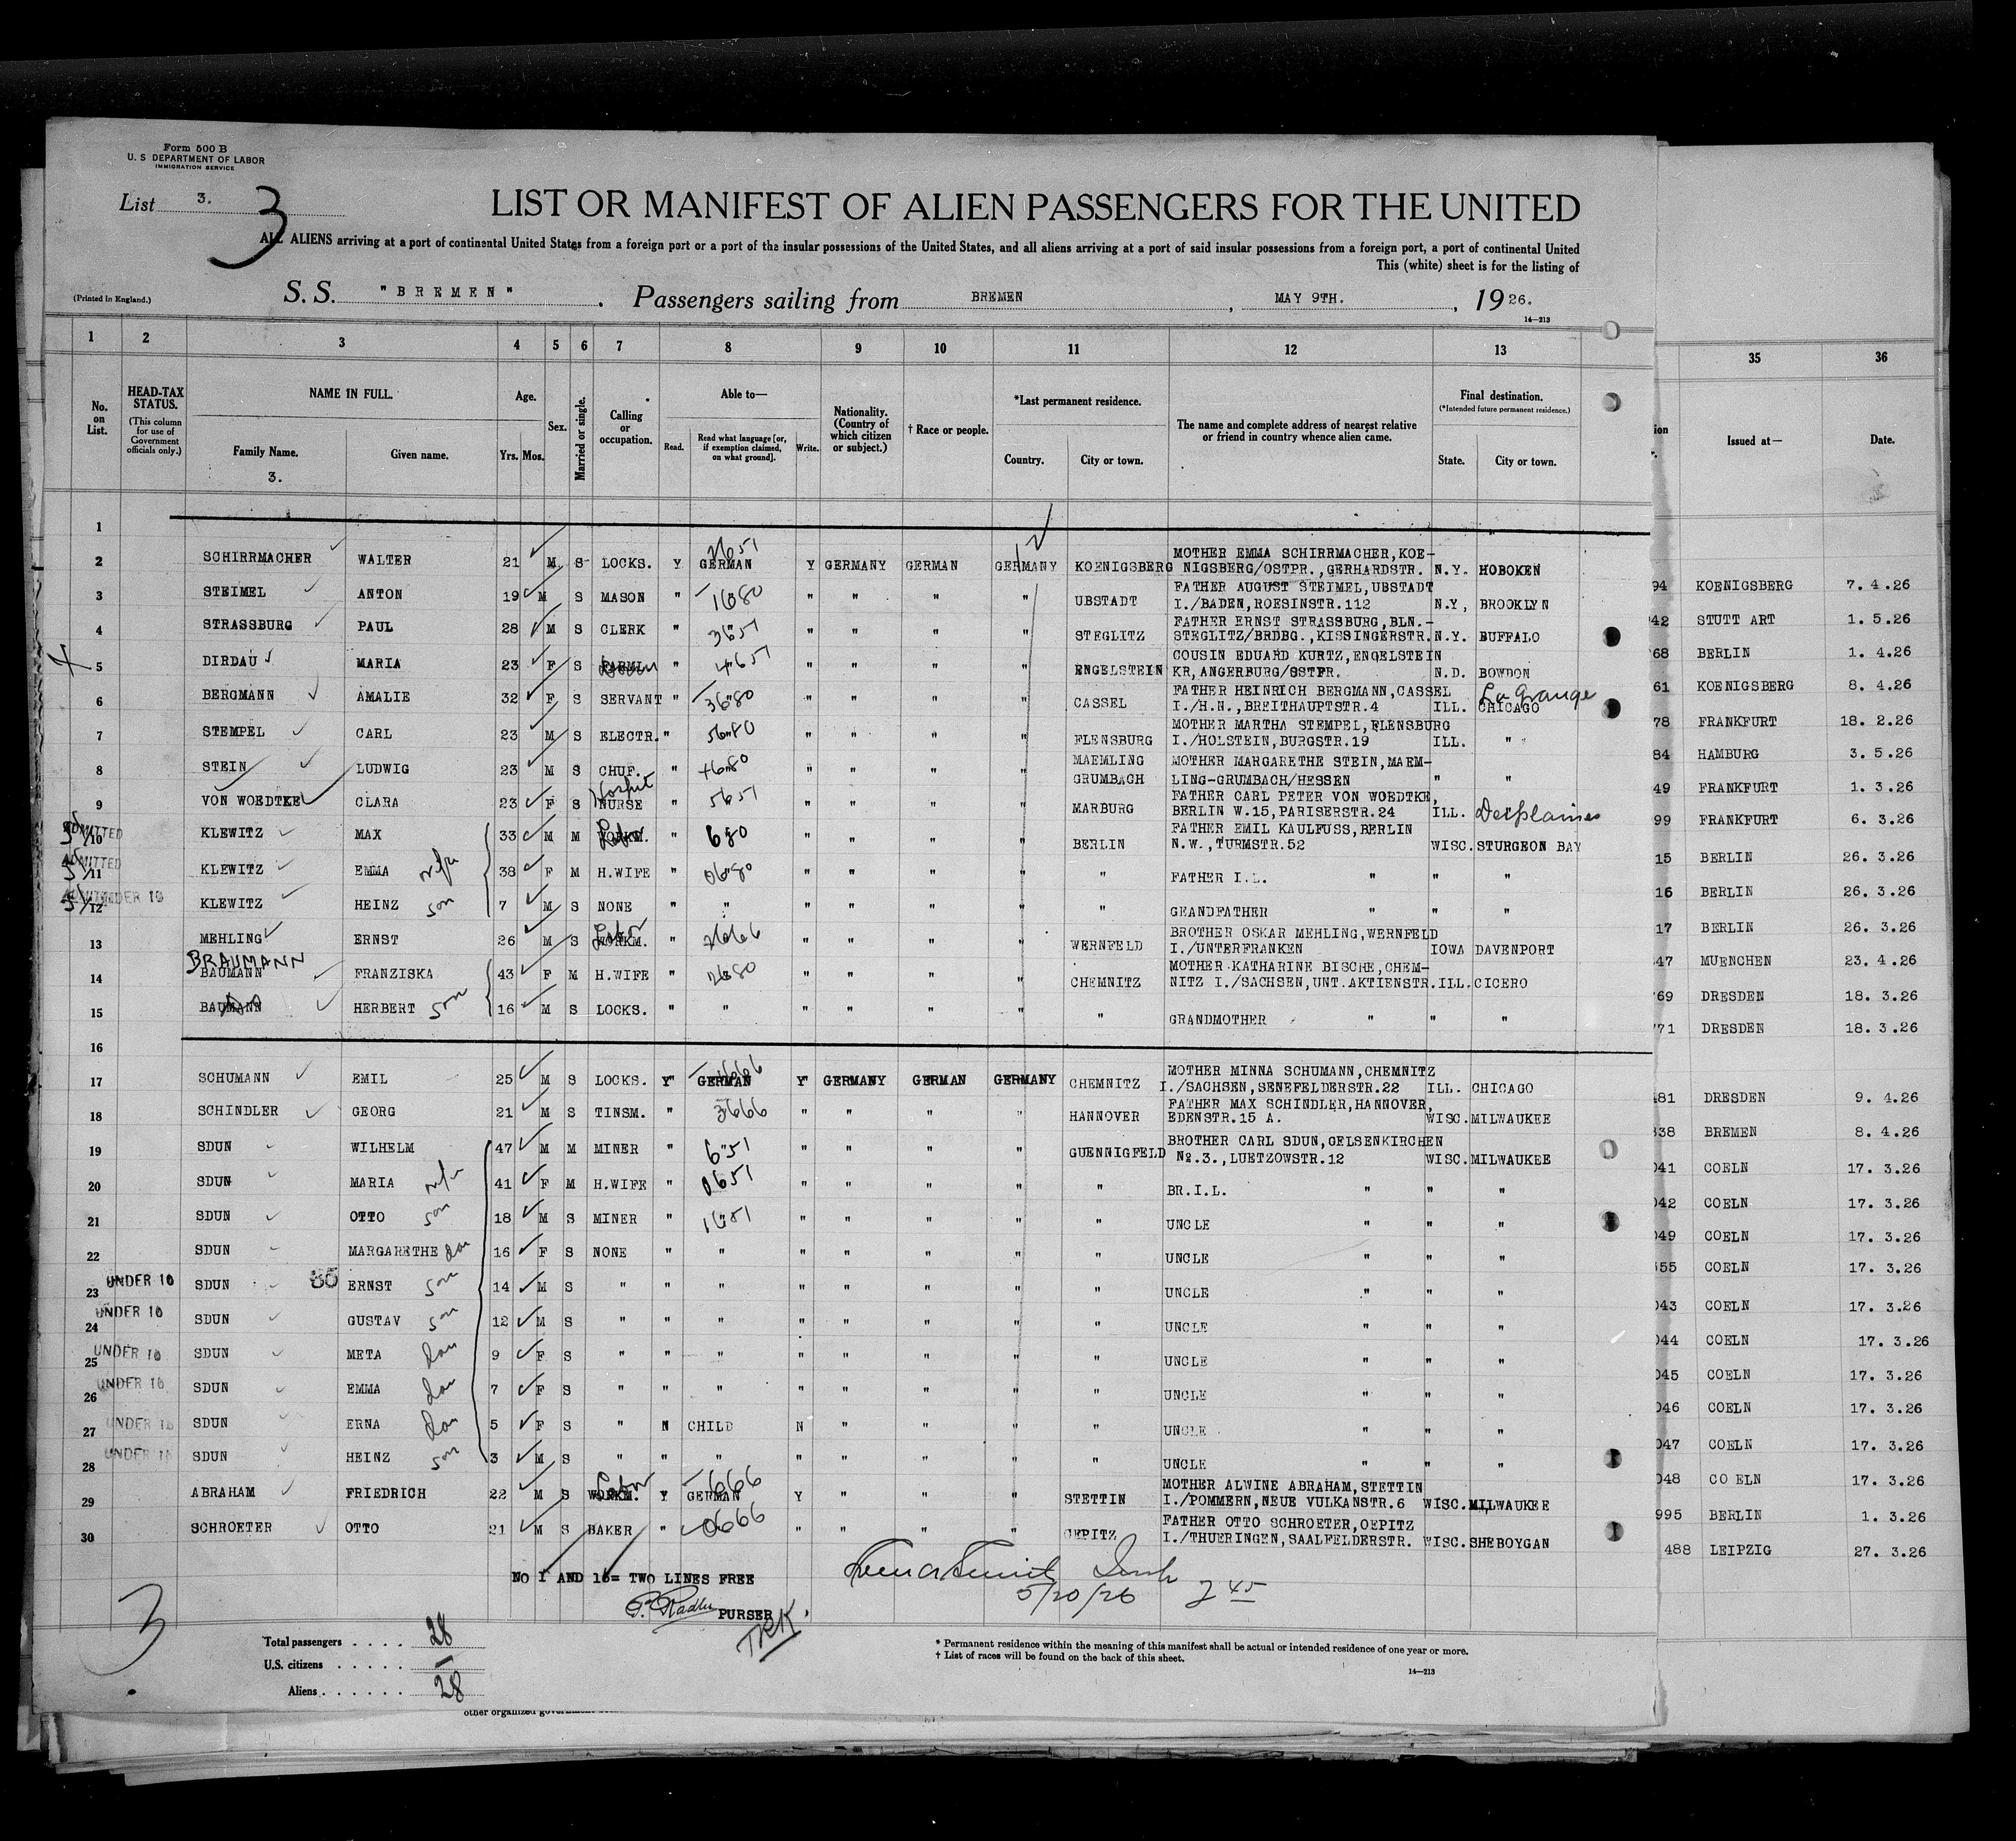 Form 500 B
U. S DEPARTMENT OF LABOR
IMMIGRATION SERVICE
List 3.
3
LIST OR MANIFEST OF ALIEN PASSENGERS FOR THE UNITED
ALL ALIENS arriving at a port of continental United States from a foreign port or a port of the insular possessions of the United States, and all aliens arriving at a port of said insular possessions from a foreign port, a port of continental United
This (white) sheet is for the listing of
(Printed in England.)
S. S. "BREMEN" . Passengers sailing from BREMEN , MAY 9TH. , 1926.
14—213
1 2 3 4 5 6 7 8 9 10 11 12 13 35 36
No. on List.
HEAD-TAX STATUS.
(This column for use of Government officials only.)
NAME IN FULL.
Family Name.
3.
Given name.
Age.
Yrs. Mos.
Sex.
Married or single.
Calling or occupation.
Able to—
Read.
Read what language [or, if exemption claimed, on what ground].
Write.
Nationality. (Country of which citizen or subject.)
† Race or people.
*Last permanent residence.
Country. City or town.
The name and complete address of nearest relative or friend in country whence alien came.
Final destination.
(*Intended future permanent residence.)
State. City or town.
Issued at—
Date.
1
2 SCHIRRMACHER WALTER 21 M S LOCKS. Y GERMAN Y GERMANY GERMAN GERMANY KOENIGSBERG MOTHER EMMA SCHIRRMACHER,KOE-
NIGSBERG/OSTPR.,GERHARDSTR. N.Y. HOBOKEN 94 KOENIGSBERG 7. 4.26
3 STEIMEL ANTON 19 M S MASON " 1680 " " " " UBSTADT FATHER AUGUST STEIMEL,UBSTADT
I./BADEN,ROESINSTR.112 N.Y, BROOKLYN 42 STUTT ART 1. 5.26
4 STRASSBURG PAUL 28 M S CLERK " 3651 " " " " STEGLITZ FATHER ERNST STRASSBURG,BLN.-
STEGLITZ/BRDBG.,KISSINGERSTR. N.Y. BUFFALO 68 BERLIN 1. 4.26
5 DIRDAU MARIA 23 F S " 4651 " " " " ENGELSTEIN COUSIN EDUARD KURTZ,ENGELSTEIN
KR,ANGERBURG/OSTPR. N.D. BOWDON 61 KOENIGSBERG 8. 4.26
6 BERGMANN AMALIE 32 F S SERVANT " 3680 " " " " CASSEL FATHER HEINRICH BERGMANN,CASSEL La Grange
I./H.N.,BREITHAUPTSTR.4 ILL. CHICAGO 78 FRANKFURT 18. 2.26
7 STEMPEL CARL 23 M S ELECTR. " 5680 " " " " FLENSBURG MOTHER MARTHA STEMPEL,FLENSBURG
I./HOLSTEIN,BURGSTR.19 ILL. " 84 HAMBURG 3. 5.26
8 STEIN LUDWIG 23 M S CHUF. " 4680 " " " " MAEMLING GRUMBACH MOTHER MARGARETHE STEIN,MAEM-
LING-GRUMBACH/HESSEN " " 49 FRANKFURT 1. 3.26
9 VON WOEDTKE CLARA 23 F S Hospit NURSE " 5651 " " " " MARBURG FATHER CARL PETER VON WOEDTKE,
BERLIN W.15,PARISERSTR.24 ILL. Desplaines 99 FRANKFURT 6. 3.26
ADMITTED 10 KLEWITZ MAX 33 M M WORKM. " 680 " " " " BERLIN FATHER EMIL KAULFUSS,BERLIN
N.W.,TURMSTR.52 WISC. STURGEON BAY 15 BERLIN 26. 3.26
ADMITTED 11 KLEWITZ EMMA wife 38 F M H.WIFE " 0680 " " " " " FATHER I.L. " " " 16 BERLIN 26. 3.26
UNDER 16 12 KLEWITZ HEINZ son 7 M S NONE " " " " " " " GRANDFATHER " " " 17 BERLIN 26. 3.26
13 MEHLING ERNST 26 M S Labor WORKM. " " " " " WERNFELD BROTHER OSKAR MEHLING,WERNFELD
I./UNTERFRANKEN IOWA DAVENPORT 47 MUENCHEN 23. 4.26
BRAUMANN
14 BAUMANN FRANZISKA 43 F M H.WIFE " " " " " CHEMNITZ MOTHER KATHARINE BISCHE,CHEM-
NITZ I./SACHSEN,UNT.AKTIENSTR. ILL. CICERO 69 DRESDEN 18. 3.26
15 BAUMANN HERBERT son 16 M S LOCKS. " " " " " " " GRANDMOTHER " " " 71 DRESDEN 18. 3.26
16
17 SCHUMANN EMIL 25 M S LOCKS. Y GERMAN Y GERMANY GERMAN GERMANY CHEMNITZ MOTHER MINNA SCHUMANN,CHEMNITZ
I./SACHSEN,SENEFELDERSTR.22 ILL. CHICAGO 481 DRESDEN 9. 4.26
18 SCHINDLER GEORG 21 M S TINSM. " 3666 " " " " HANNOVER FATHER MAX SCHINDLER,HANNOVER,
EDENSTR.15 A. WISC. MILWAUKEE 338 BREMEN 8. 4.26
19 SDUN WILHELM 47 M M MINER " 651 " " " " GUENNIGFELD BROTHER CARL SDUN,GELSENKIRCHEN
No.3.,LUETZOWSTR.12 WISC. MILWAUKEE 041 COELN 17. 3.26
20 SDUN MARIA wife 41 F M H.WIFE " 0651 " " " " " BR.I.L. " " " 042 COELN 17. 3.26
21 SDUN OTTO son 18 M S MINER " " " " " " UNCLE " " " 049 COELN 17. 3.26
22 SDUN MARGARETHE dau 16 F S NONE " " " " " " " UNCLE " " " 55 COELN 17. 3.26
UNDER 16 23 SDUN ERNST son 14 M S " " " " " " " " UNCLE " " " 043 COELN 17. 3.26
UNDER 16 24 SDUN GUSTAV son 12 M S " " " " " " " " UNCLE " " " 044 COELN 17. 3.26
UNDER 16 25 SDUN META dau 9 F S " " " " " " " " UNCLE " " " 045 COELN 17. 3.26
UNDER 16 26 SDUN EMMA dau 7 F S " " " " " " " " UNCLE " " " 046 COELN 17. 3.26
UNDER 16 27 SDUN ERNA dau 5 F S " N CHILD N " " " " UNCLE " " " 047 COELN 17. 3.26
UNDER 16 28 SDUN HEINZ son 3 M S " " " " " " " " UNCLE " " " 048 CO ELN 17. 3.26
29 ABRAHAM FRIEDRICH 22 M S Labor WORKM. Y GERMAN Y " " " STETTIN MOTHER ALWINE ABRAHAM,STETTIN
I./POMMERN,NEUE VULKANSTR.6 WISC. MILWAUKEE 995 BERLIN 1. 3.26
30 SCHROETER OTTO 21 M S BAKER " 0666 " " " " OEPITZ FATHER OTTO SCHROETER,OEPITZ
I./THUERINGEN,SAALFELDERSTR. WISC. SHEBOYGAN 488 LEIPZIG 27. 3.26
NO 1 AND 16= TWO LINES FREE
PURSER
5/20/26 2 45
3
Total passengers . . . . 28
U.S. citizens . . . . . . –
Aliens . . . . . . . 28
* Permanent residence within the meaning of this manifest shall be actual or intended residence of one year or more.
† List of races will be found on the back of this sheet.
14—213